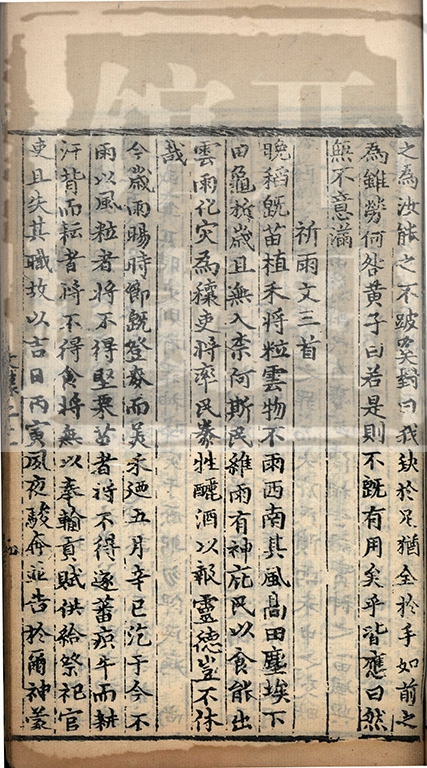 之為汝能之不跛奚對曰我缺於足猶全於手如前之
為雖勞何咎黃子曰若是則不既有用矣乎皆應曰然
無不意滿
祈雨文三首
晚稻既苗植禾將粒雲物不雨西南其風高田塵埃下
田龜拆歲且無入柰何斯民維雨有神庇民以食能出
雲雨化灾為穰吏將率民豢牲釃酒以報靈德豈不休
哉
今歲雨暘時節既登麥而美禾廼五月辛巳汔于今不
雨以風粒者將不得堅栗苗者將不得遂蕃痕牛而耕
汗背而耘者將不得食將無以奉輸貢賦供給祭祀官
吏且失其職故以吉日丙寅夙夜駿奔並告於爾神蒙